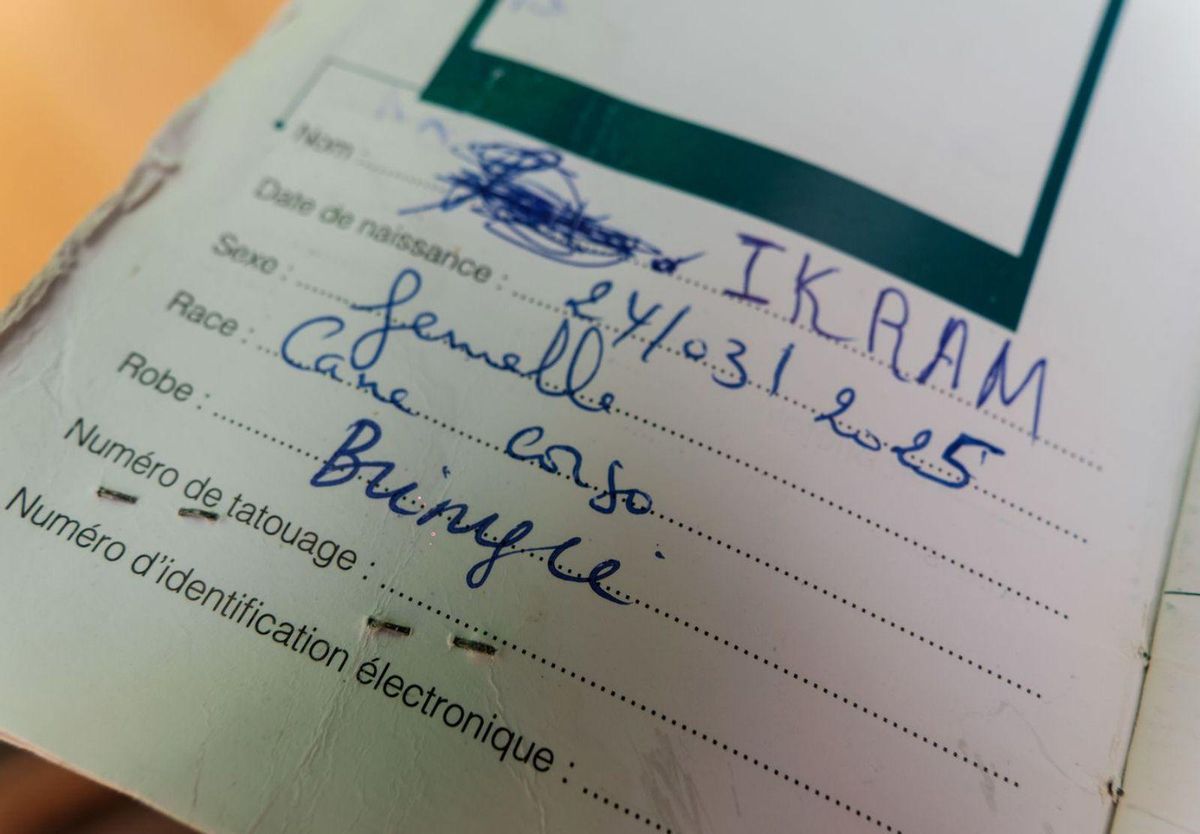 Nom : IKRAM
Date de naissance : 24/03/2025
Sexe : femelle
Race : Cane corso
Robe : Bringé
Numéro de tatouage :
Numéro d'identification électronique :